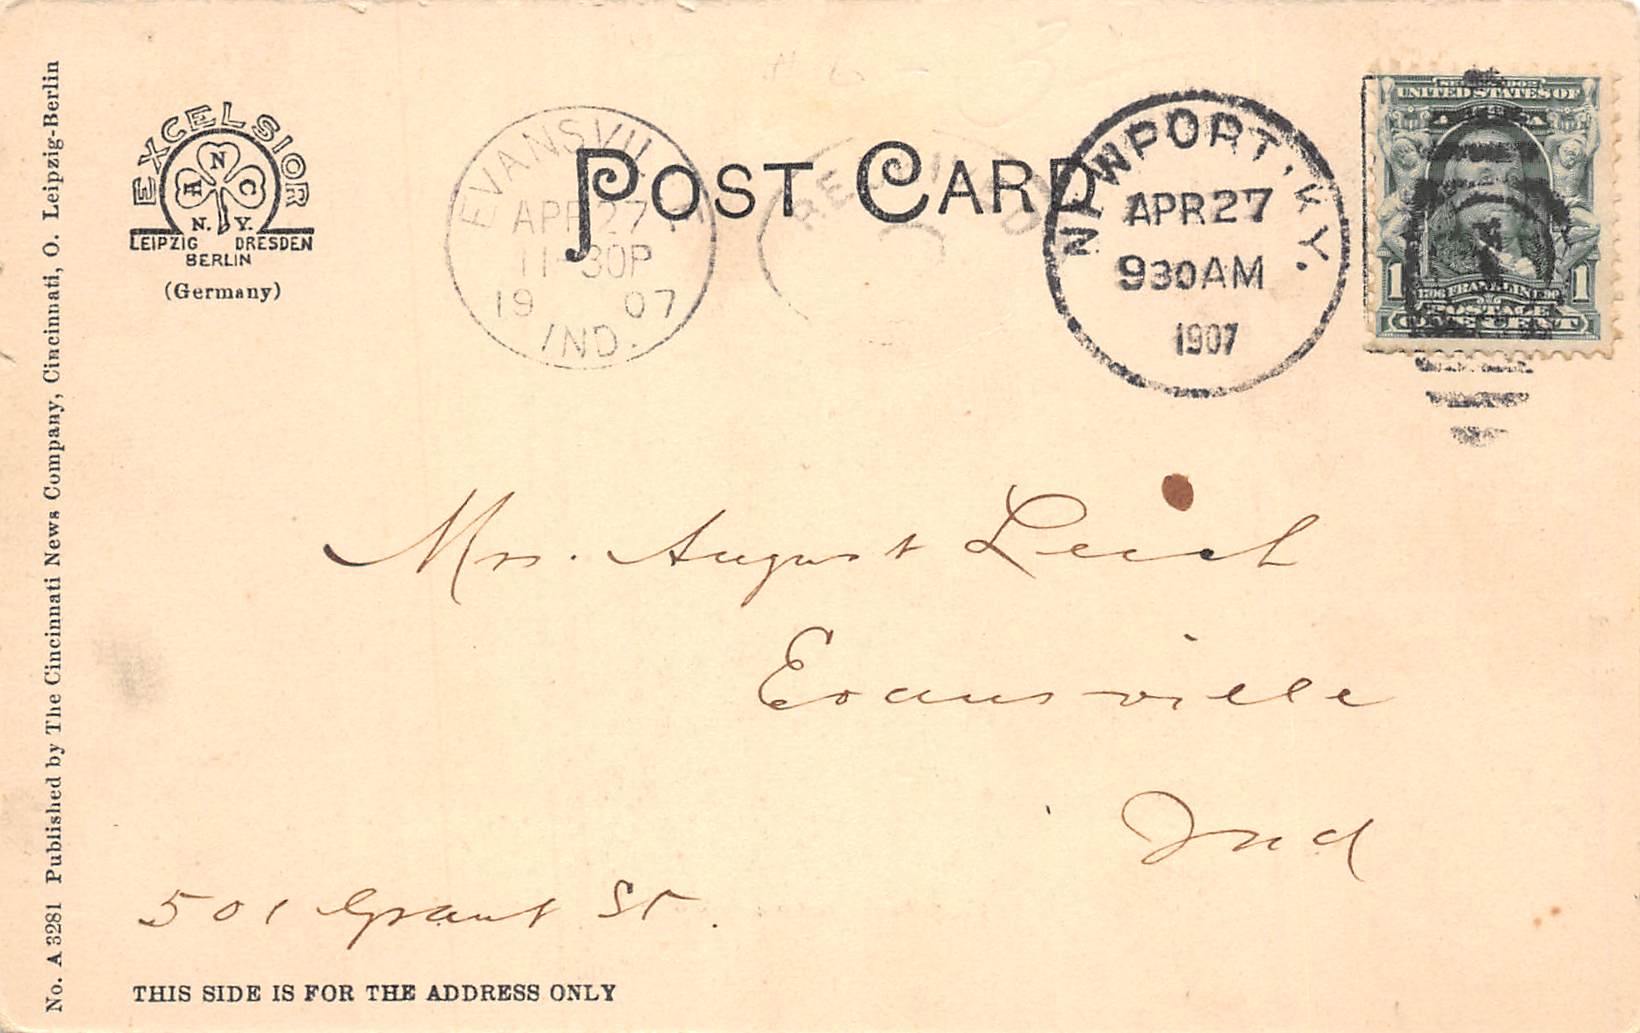 EXCELSIOR
A N C
N. Y.
LEIPZIG DRESDEN
BERLIN
(Germany)
POST CARD
EVANSVILLE
APR 27
11-30P
19 07
IND.
RECEIVED
NEWPORT, KY.
APR 27
930AM
1907
UNITED STATES OF
AMERICA
1 FRANKLIN 1
POSTAGE
ONE CENT
Mrs. August Leich
Evansville
Ind
501 Grant St.
THIS SIDE IS FOR THE ADDRESS ONLY
No. A 3281 Published by The Cincinnati News Company, Cincinnati, O. Leipzig-Berlin